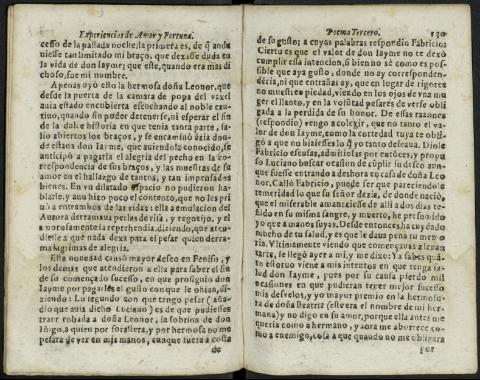 Experiencias de Amor y Fortuna.
cesso de la passada noche; la primera es, de q̃ andu
uiesse tan limitado mi braço, que dexasse duda en
la vida de don Iayme; que este, quando era mas di
choso, fue mi nombre.
Apenas oyò esto la hermosa doña Leonor, que
desde la puerta de la camara de popa del vaxel
auia estado encubierta escuchando al noble cau-
tiuo, quando sin poder detenerse, ni esperar el fin
de la dulce historia en que tenia tanta parte, sa-
lio abiertos los braços, y se encaminò àzia don-
de estaua don Iayme, que auiendola conocido, se
anticipò a pagarla el alegria del pecho en la co-
rrespondencia de sus braços, y las muestras de su
amor en el hallazgo de tantos, y tan impensados
bienes. En vn dilatado espacio no pudieron ha-
blarse, y aun hizo poco el contento, que no les pri
uò a entrambos de las vidas: ella a emulacion del
Aurora derramaua perlas de risa, y regozijo, y el
amorosamente la reprehendia, diziendo, que acu
diesse à que nada dexa para el pesar quien derra-
ma lagrimas de alegria.
Esta nouedad causò mayor deseo en Feniso, y
los demas que atendieron a ella para saber el fin
de su començado sucesso, en que prosiguio don
Iayme por pagarles el gusto con que le oìan, di-
ziendo: Lo segundo con que tengo pesar (aña-
dio que auia dicho Luciano) es de que pudiesses
traer robada a doña Leonor, la sobrina de don
Iñigo, a quien por forastera, y por hermosa no me
pesara de ver en mis manos, aunque fuera à costa
de
Poema Tercero. 130
de su gusto; a cuyas palabras respondio Fabricio:
Cierto es que el valor de don Iayme no te dexò
cumplir essa intencion, si bien no sè como es pos-
sible que aya gusto, donde no ay corresponden-
cia, ni que entrañas ay, que en lugar de rigores
no muestre piedad, viendo en los ojos de vna mu
ger el llanto, y en la volũtad pesares de verse obli
gada a la perdida de su honor. De essas razones
(respondio) vengo a colegir, que no tanto el va-
lor de don Iayme, como la cortedad tuya te obli-
gò a que no hiziesses lo q̃ yo tanto deseaua. Diole
Fabricio escusas, admitiolas por entonces, y propu
so Luciano buscar ocasion de cũplir su deseo aun-
que fuesse entrando a deshora en casa de doña Leo
nor, Callò Fabricio, puede ser que pareciendole
temeridad lo que su señor dezia, de donde naciò,
que el miserable amaneciesse de alli a dos dias te-
ñido en su misma sangre, y muerto, he presumido
yo que a manos suyas. Desde entonces, ha cuydado
mucho de tu salud, y es que le daua pena tu memo
ria. Vltimamente viendo que començauas a leuan-
tarte, se llegò ayer a mi, y me dixo: Ya sabes quã-
to estoruo viene a mis intentos en que tenga sa-
lud don Iayme, pues por su causa pierdo mil
ocasiones en que pudieran tener mejor sucesso
mis desvelos, y yo mayor premio en la hermosu-
ra de doña Beatriz (este era el nombre de mi her-
mana) y no digo en su amor, porque ella antes me
queria como a hermano, y aora me aborrece co-
mo a enemigo, cosa a que quando no me obligara
por